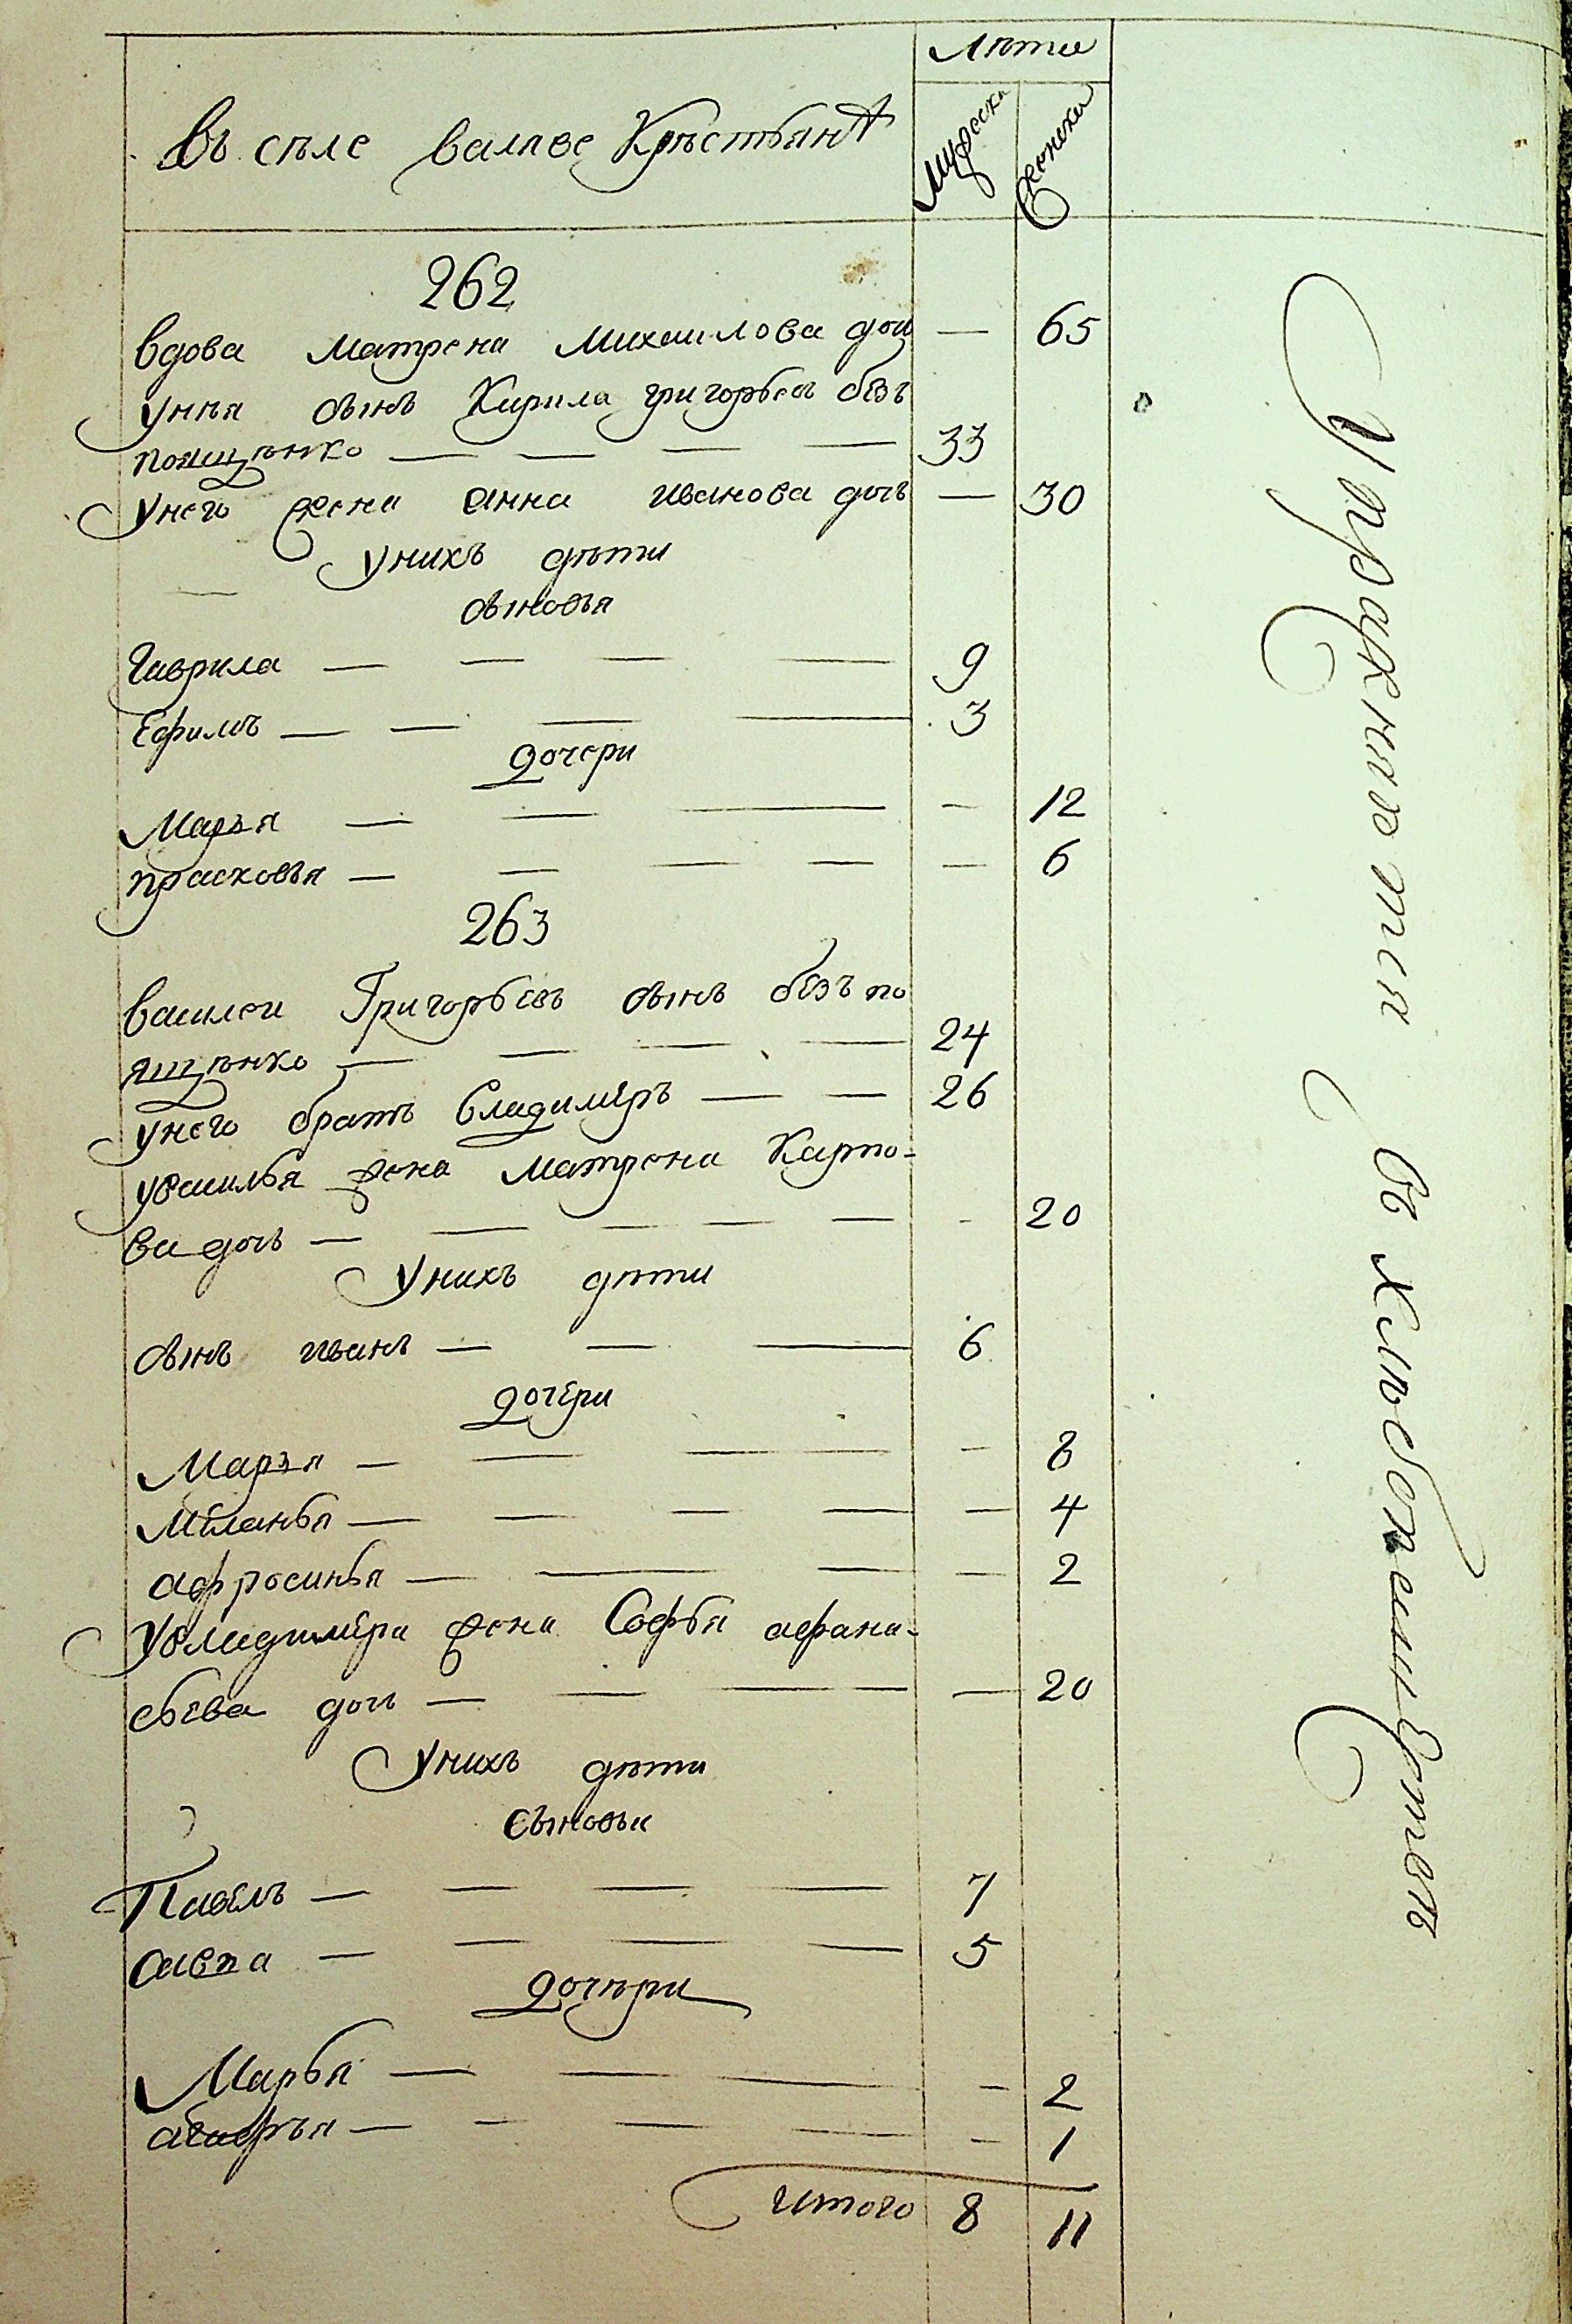 Лѣты
въ сѣле валпве Крѣстьянъ
мужеска
женска
262
вдова матрена михаилова доч 65
унѣя сынъ Кирила григорьевъ безъ
поящѣнко 33
унего жена анна иванова дочь 30
унихъ дѣти
сыновья
гаврила 9
Ефимъ 3
дочери
Марья 12
прасковья 6
263
василеи Григорьевъ сынъ безъ по
ящѣнко 24
унего братъ владимеръ 26
увасилья жена матрена Карпо-
ва дочь 20
унихъ дѣти
сынъ иванъ 6
дочери
Марья 8
Меланья 4
афросинья 2
увладимера жена Софья афана-
сьева дочь 20
унихъ дѣти
сыновьи
Павелъ 7
савва 5
дочѣри
Марья 2
агафья 1
итого 8 11
Упражнается в хлебопашестве